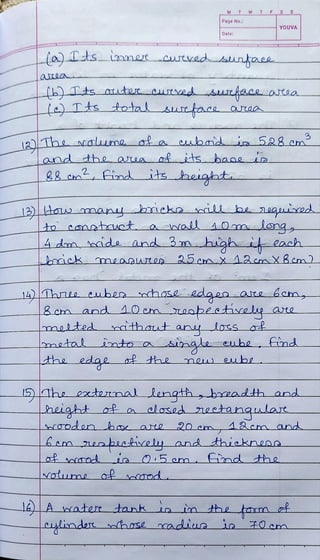 M T W T F S S
Page No.:
Date:
YOUVA
(a) Its inner curved surface
area.
(b) Its outer curved surface area
(c) Its total surface area
12) The volume of a cuboid is 528 cm³
and the area of its base is
88 cm², Find its height.
13) How many bricks will be required
to construct a wall 10m long,
4 dm wide and 3m high if each
brick measures 25cm X 12cmX8cm?
14) Three cubes whose edges are 6cm,
8cm and 10cm respectively are
melted without any loss of
metal into a single cube. Find
the edge of the new cube.
15) The external length, breadth and
height of a closed rectangular
wooden box are 20cm, 12cm and
6cm respectively and thickness
of wood is 0.5cm. Find the
volume of wood.
16) A water tank is in the form of
cylinder whose radius is 70cm